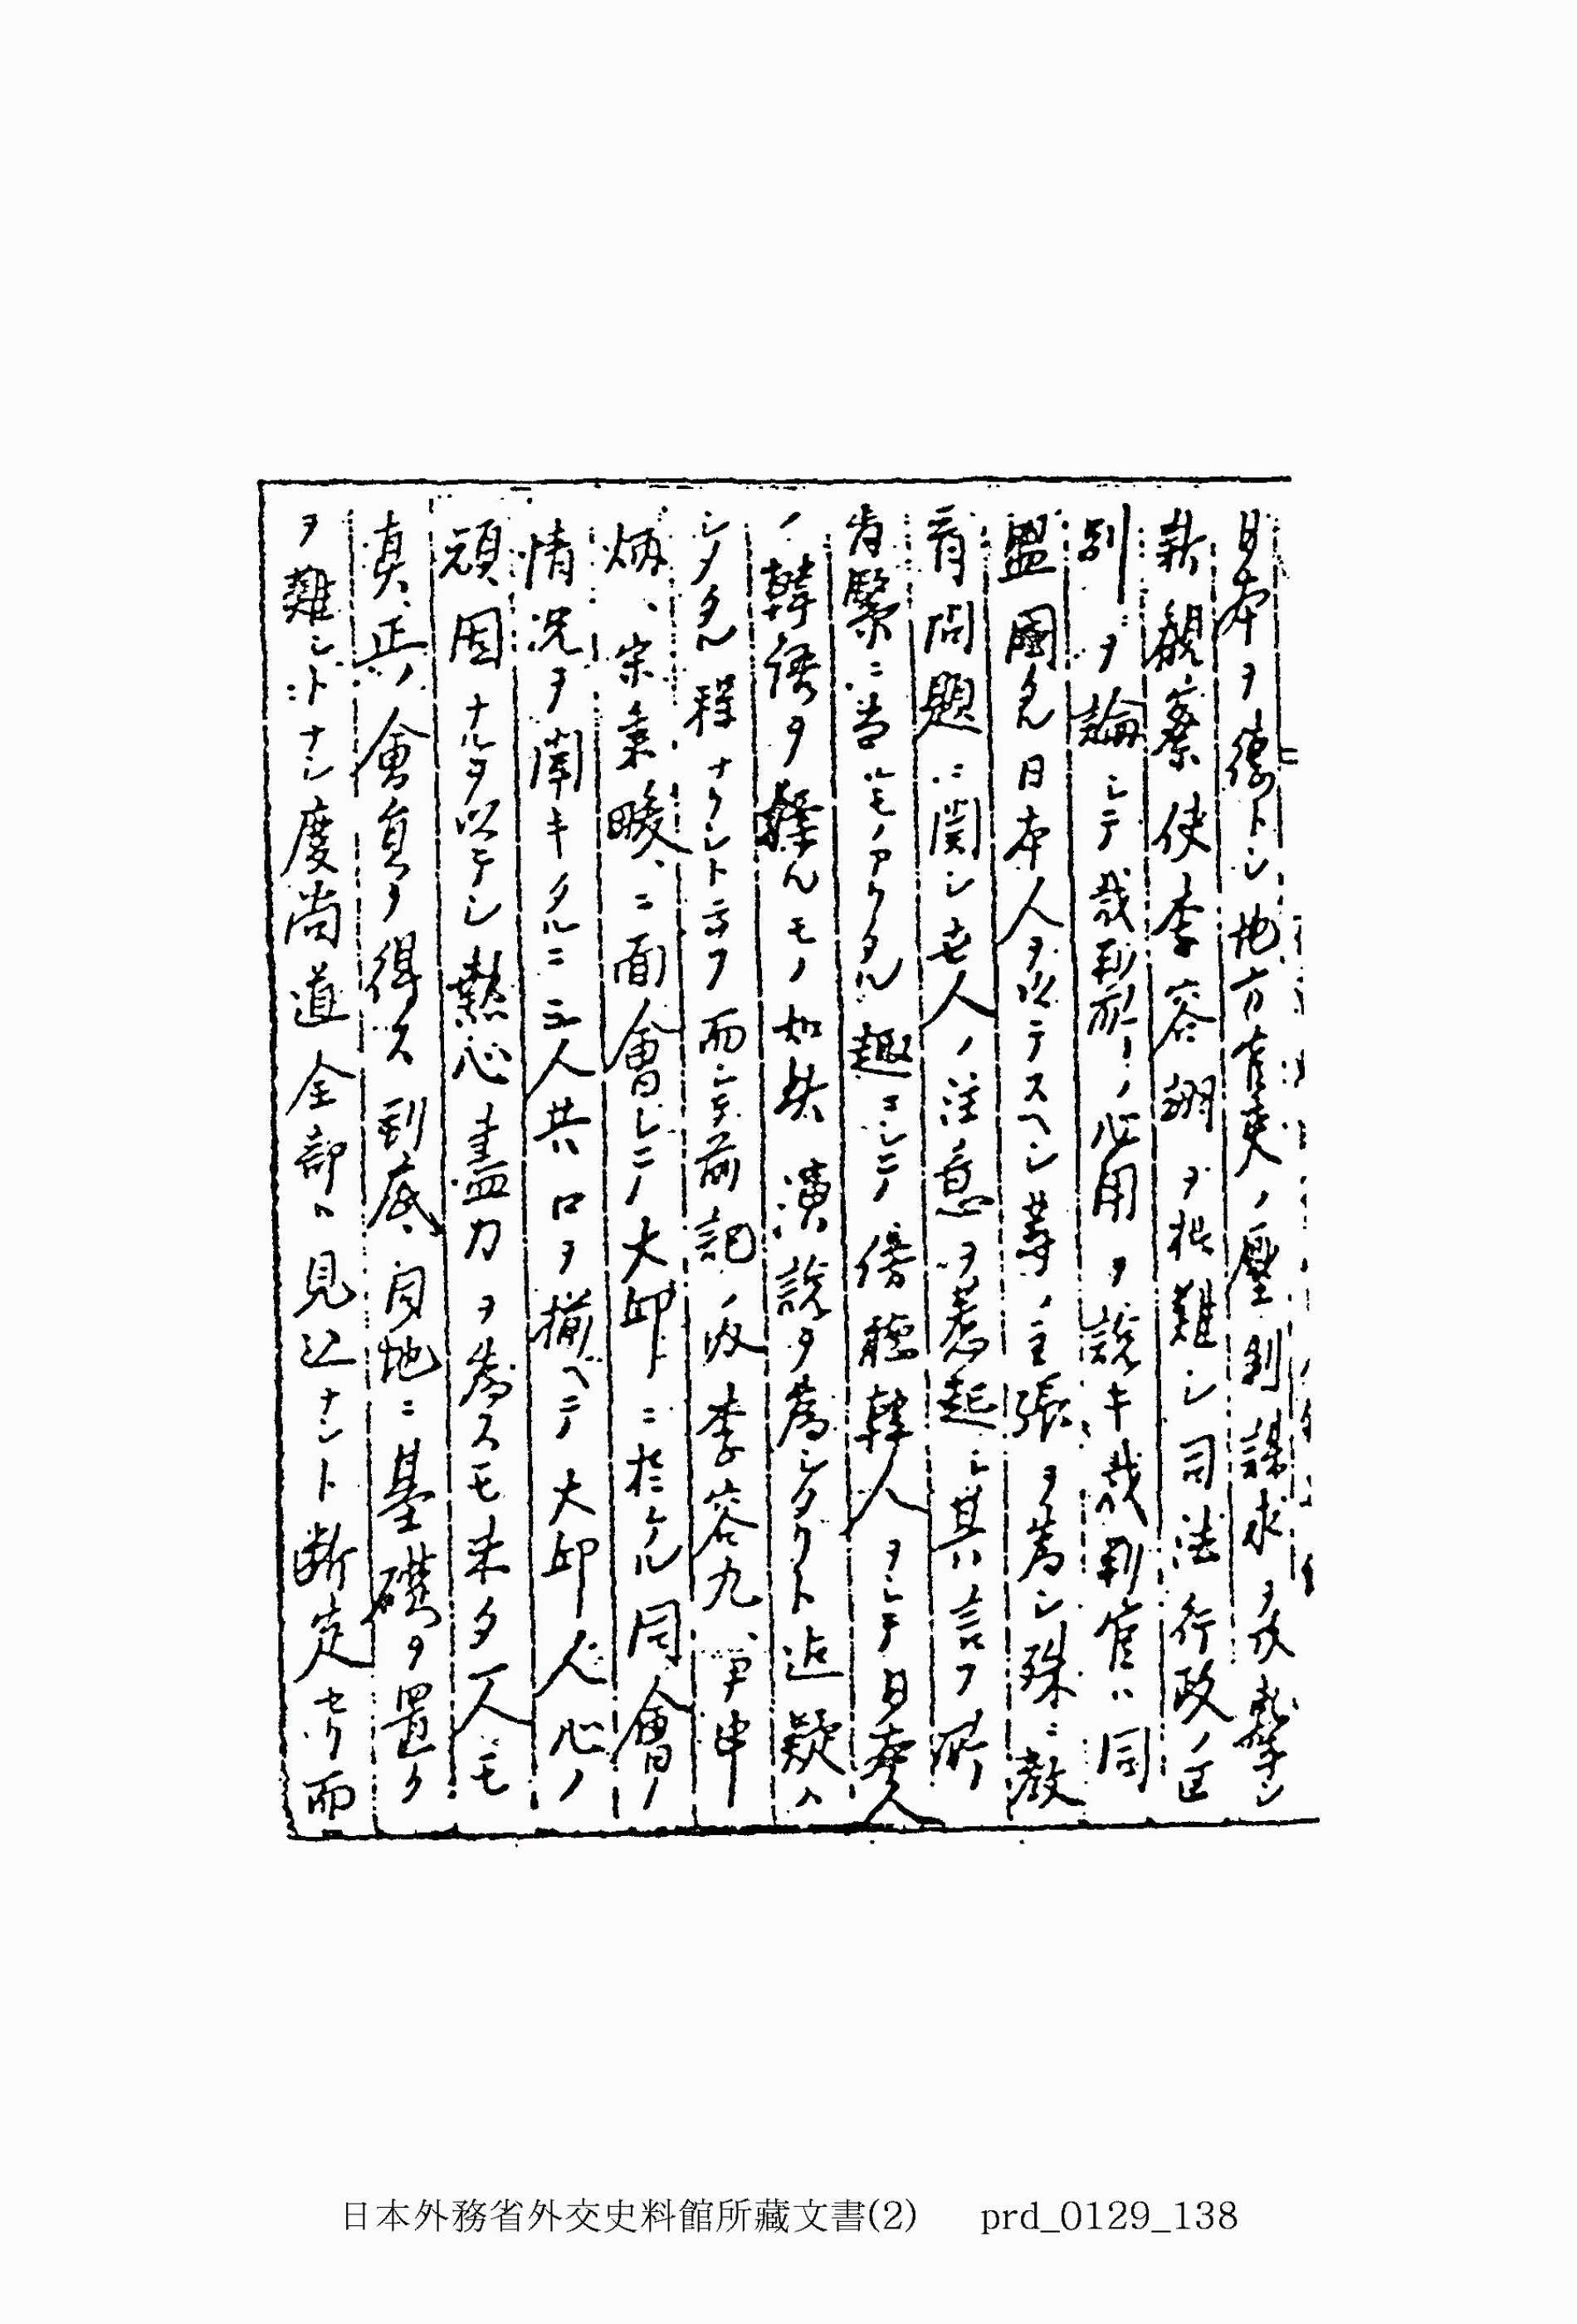 日本ヲ德トシ地方官吏ノ壓制誅求ヲ攻擊シ
新觀察使李容翊ヲ批難シ司法行政ノ区
別ヲ論シテ裁判所ノ必用ヲ說キ裁判官ハ同
盟國タル日本人ヲ以テスヘシ等ノ主張ヲ為シ殊ニ教
育問題ニ関シ老人ノ注意ヲ惹起シ其言フ所
肯綮ニ当ルモノアリタル趣ニシテ傍聽韓人ヲシテ日本人
ノ韓語ヲ操ルモノ如此演說ヲ為シタリト迄疑ハ
シメタル程ナリシト云フ而シテ前記ノ以李容九、尹申
炳、宋秉畯、ニ面會シテ大邱ニ於ケル同會ノ
情況ヲ聞キタルニ三人共口ヲ揃ヘテ大邱人心ノ
頑固ナルヲ以テシ熱心盡力ヲ為スモ未タ一人モ
真正ノ會員ヲ得ス到底同地ニ基礎ヲ置ク
ヲ難シトナシ慶尚道全部ハ見込ナシト断定セリ而
日本外務省外交史料館所藏文書(2) prd_0129_138